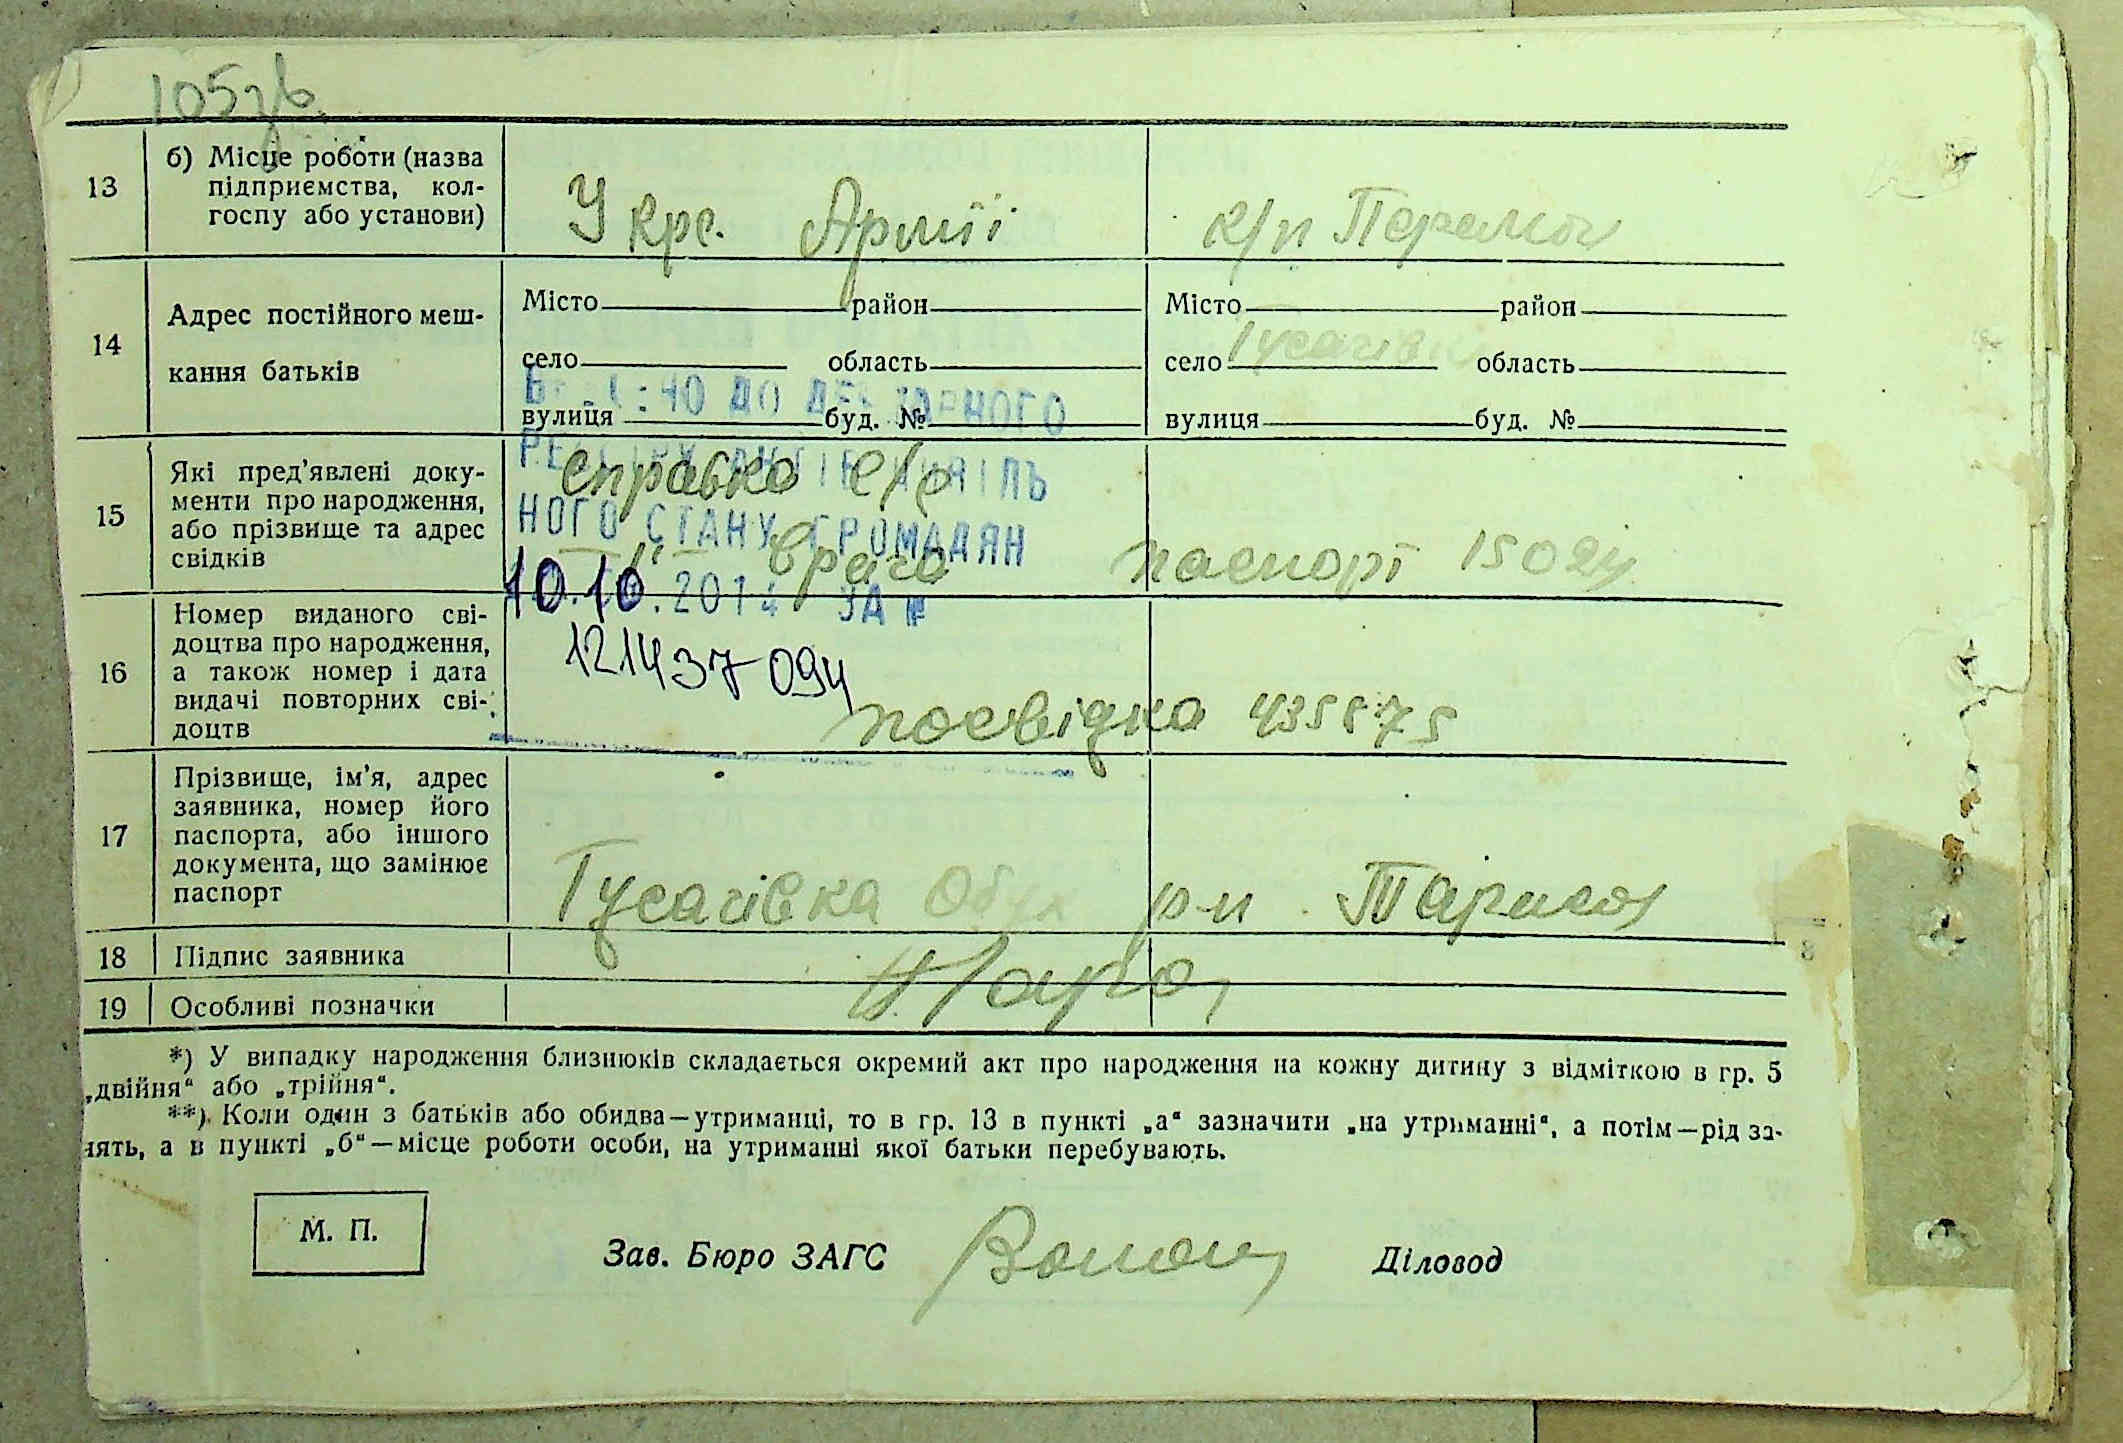 105зв.
13
б) Місце роботи (назва
підприємства, кол-
госпу або установи)
У крс. Армії
к/п Перемог
14
Адрес постійного меш-
кання батьків
Місто район
село область
вулиця буд. №
Місто район
село Гусачівка область
вулиця буд. №
15
Які пред'явлені доку-
менти про народження,
або прізвище та адрес
свідків
справка с/р
паспорт
ДО ДЕРЖАВНОГО
РЕЄСТРУ АКТІВ ЦИВІЛЬ
НОГО СТАНУ ГРОМАДЯН
10.10.2014 ЗА №
121437094
16
Номер виданого сві-
доцтва про народження,
а також номер і дата
видачі повторних сві-
доцтв
посвідка 435575
17
Прізвище, ім'я, адрес
заявника, номер його
паспорта, або іншого
документа, що замінює
паспорт
Гусачівка Обух р-н
18
Підпис заявника
19
Особливі позначки
*) У випадку народження близнюків складається окремий акт про народження на кожну дитину з відміткою в гр. 5
„двійня“ або „трійня“.
**) Коли один з батьків або обидва—утриманці, то в гр. 13 в пункті „а“ зазначити „на утриманні“, а потім—рід за-
нять, а в пункті „б“—місце роботи особи, на утриманні якої батьки перебувають.
М. П.
Зав. Бюро ЗАГС
Діловод